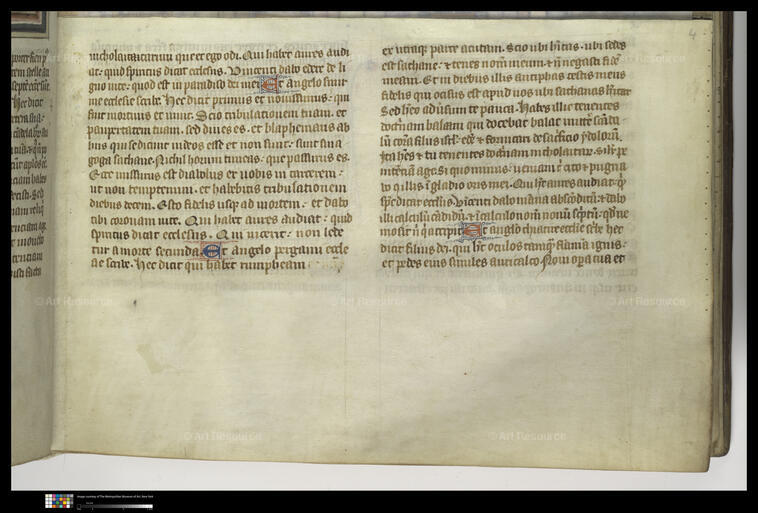 nicholaitarum que et ego odi. Qui habet aures audi
at: quid spiritus dicat ecclesiis. Vincenti dabo edere de li
gno vite: quod est in paradiso dei mei. Et angelo smir
me ecclesie scribe. Hec dicit primus et novissimus: qui
fuit mortuus et vivit. Scio tribulationem tuam. et
paupertatem tuam. sed dives es. et blasphemaris ab
hiis qui se dicunt iudeos esse et non sunt: sunt sina
goga sathane. Nichil horum timeas: que passurus es.
Ecce missurus est diabolus ex vobis in carcerem:
ut non temptemini. et habebitis tribulationem
diebus decem. Esto fidelis usque ad mortem: et dabo
tibi coronam vite. Qui habet aures audiat: quid
spiritus dicat ecclesiis. Qui vicerit: non lede
tur a morte secunda. Et angelo pergami eccle
sie scribe. Hec dicit qui habet rumpheam
ex utraque parte acutam. Scio ubi habitas. ubi sedes
est sathane: et tenes nomen meum. et non negasti fidem
meam. Et in diebus illis antiphas testis meus
fidelis qui occisus est apud vos ubi sathanas habitat
Sed habeo adversum te pauca. Habes illic tenentes
doctrinam balaam qui docebat balac mittere scanda
lum coram filiis israel. edere et fornicari de sacrificio ydolorum.
Ita habes et tu tenentes doctrinam nicholaitarum. Similiter pe
nitentiam age. Si quo minus: veniam tibi cito et pugna
bo cum illis in gladio oris mei. Qui habet aures audiat quid
spiritus dicat ecclesiis. Vincenti dabo manna absconditum: et dabo
illi calculum candidum: et in calculo nomen novum scriptum: quod ne
mo scit nisi qui accipit. Et angelo thiatire ecclesie scribe hec
dicit filius dei. qui habet oculos tamquam flamma ignis:
et pedes eius similes auricalco. Novi opera tua et
4
Art Resource
Art Resource
Art Resource
Art Resource
Art Resource
Art Resource
Art Resource
Art Resource
Image courtesy of The Metropolitan Museum of Art, New York